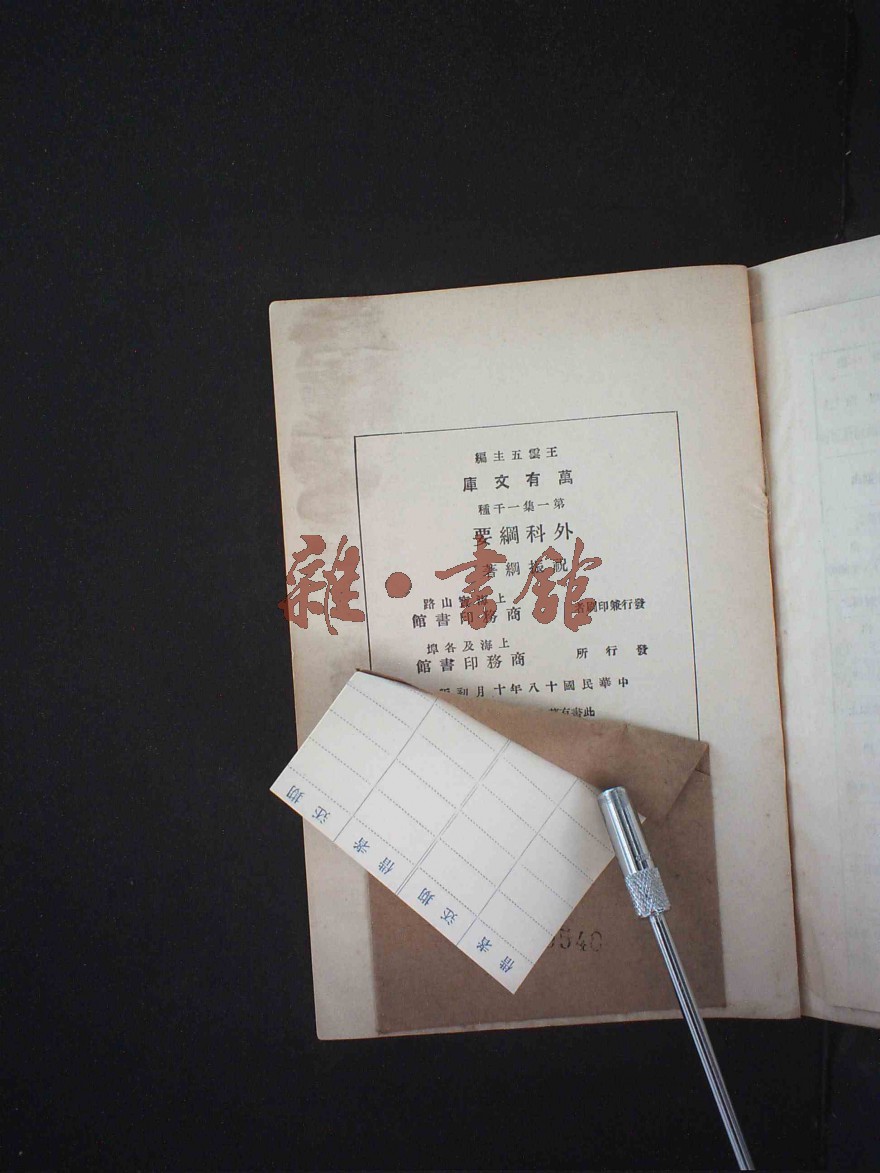 王雲五主編
萬有文庫
第一集一千種
外科綱要
祝振綱著
發行兼印刷者
上海寶山路
商務印書館
發行所
上海及各埠
商務印書館
中華民國十八年十月初版
此書有
借者 还期 借者 还期
540
雜·書館